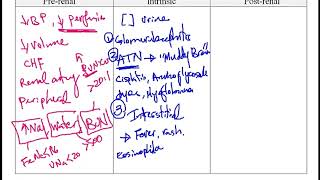 Pre-renal
Intrinsic
Post-renal
↓BP, ↓ Perfusion
↓Volume
CHF
Renal artery
Peripheral
BUN/Cr
>20:1
↑Na, Water, BUN
FeNa<1%
UNa<20
[] Urine
① Glomerulonephritis
② ATN → "Muddy Brown
Cisplatin, Aminoglycoside
dye, Myoglobinuria
③ Interstitial
→ Fever, rash,
Eosinophilia